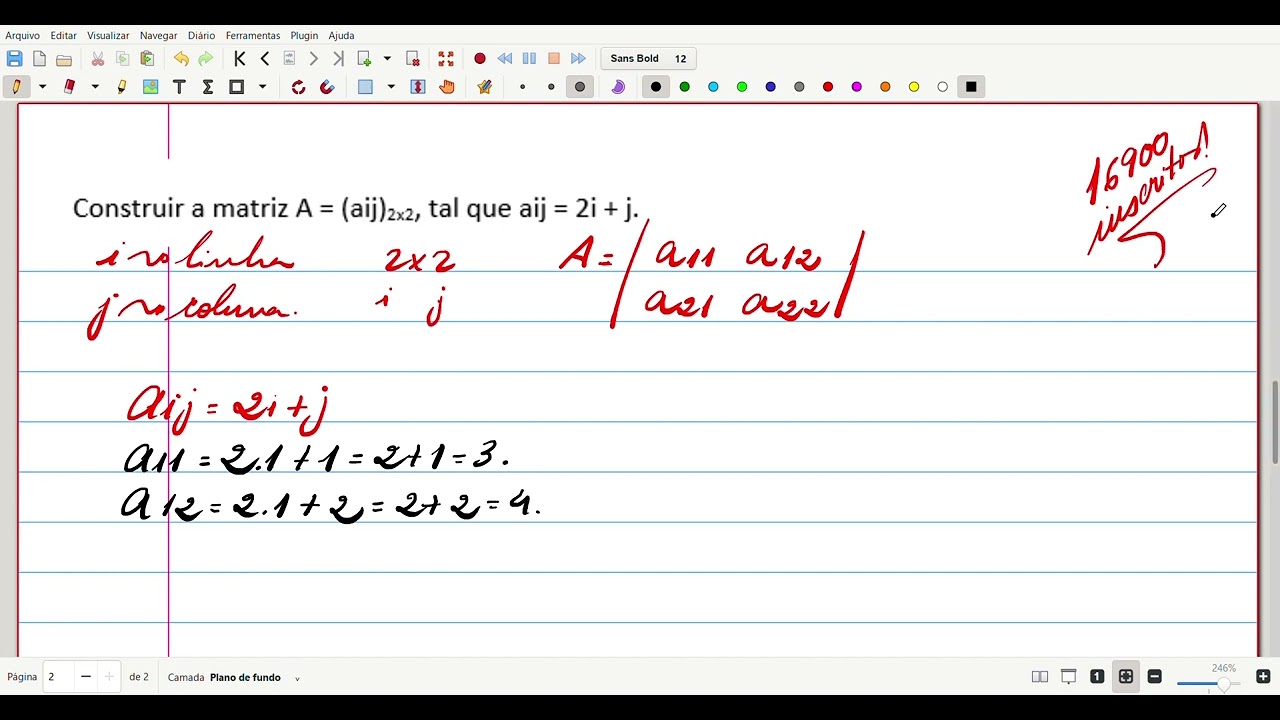 Arquivo Editar Visualizar Navegar Diário Ferramentas Plugin Ajuda
Sans Bold 12
16900
inscritos!
Construir a matriz A = (aij)2x2, tal que aij = 2i + j.
i → linha 2x2 A = | a11 a12 |
j → coluna. i j | a21 a22 |
aij = 2i + j
a11 = 2.1 + 1 = 2+1 = 3.
a12 = 2.1 + 2 = 2+2 = 4.
Página 2 de 2 Camada Plano de fundo 246%